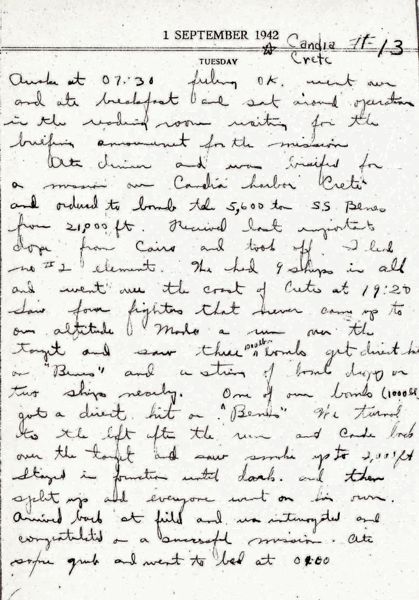 1 SEPTEMBER 1942
☆ Candia # 13
Crete
TUESDAY
Awoke at 07:30 feeling OK. went over
and ate breakfast and sat around operations
in the reading room waiting for the
briefing for the mission
Ate dinner and was briefed for
a mission on Candia harbor Crete
and ordered to bomb the 5,600 ton SS Benes
from 21,900 ft. Received last important
dope from Cairo and took off. I led
no #2 element. We had 9 ships in all
and went over the coast of Crete at 19:20
Saw four fighters that never came up to
our altitude Made a run over the
target and saw three bombs get direct hits
on "Benes" and a string of bombs drop on
two ships nearby. One of our bombs (1000 lb)
got a direct hit on "Benes" We turned
to the left after the run and came back
over the target and saw smoke up to 2,000 ft
Stayed in formation until dark. and then
split up and everyone went on his own.
Arrived back at field and was interrogated and
congratulated on a successful mission. Ate
some grub and went to bed at